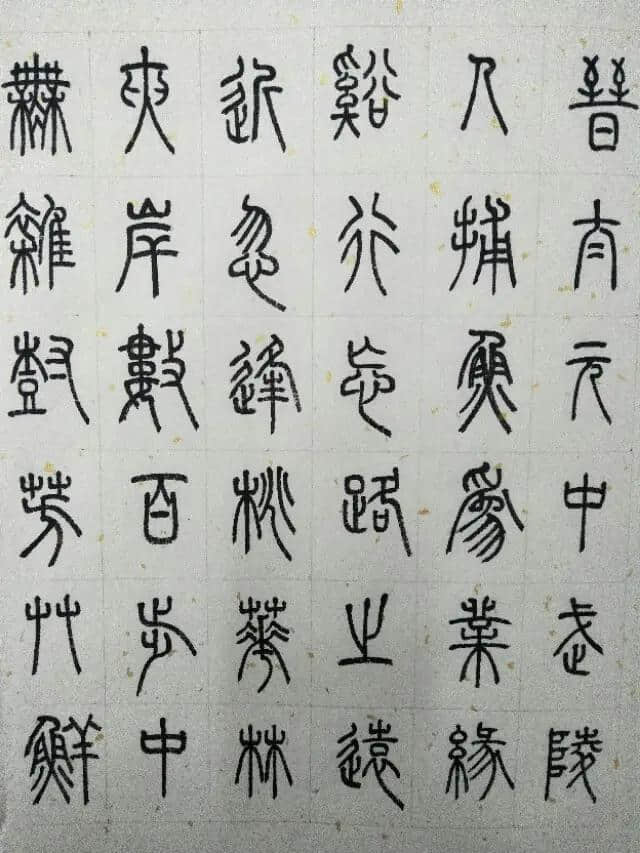 晉太元中武陵
人捕魚為業緣
谿行忘路之遠
近忽逢桃華林
夾岸數百步中
無雜樹芳艸鮮